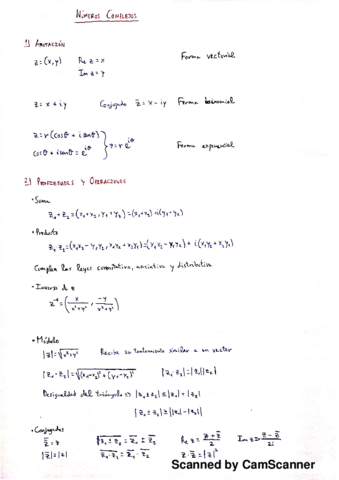 NÚMEROS COMPLEJOS
1) NOTACIÓN
z = (x,y)   Re z = x   Forma vectorial
Im z = y
z = x + iy   Conjugado z̄ = x - iy   Forma binomial
z = r (cosθ + i senθ)
cosθ + i senθ = e^{iθ} } z = r e^{iθ}   Forma exponencial
2) PROPIEDADES Y OPERACIONES
· Suma
z₁ + z₂ = (x₁+x₂, y₁+y₂) = (x₁+x₂) + i(y₁+y₂)
· Producto
z₁ z₂ = (x₁x₂ - y₁y₂, x₁y₂ + x₂y₁) = (x₁x₂ - y₁y₂) + i(x₁y₂ + x₂y₁)
Cumplen las leyes conmutativa, asociativa y distributiva
· Inverso de z
z⁻¹ = (x/(x²+y²), -y/(x²+y²))
· Módulo
|z| = √(x²+y²)   Recibe un tratamiento similar a un vector
|z₁ - z₂| = √((x₁-x₂)² + (y₁-y₂)²)   |z₁·z₂| = |z₁||z₂|
Desigualdad del triángulo => |z₁ ± z₂| ≤ |z₁| + |z₂|
|z₁ ± z₂| ≥ ||z₁| - |z₂||
· Conjugados
z̿ = z   \overline{z₁ ± z₂} = z̄₁ ± z̄₂   Re z = (z + z̄)/2   Im z = (z - z̄)/2i
|z̄| = |z|   \overline{z₁·z₂} = z̄₁·z̄₂   z·z̄ = |z|²
Scanned by CamScanner